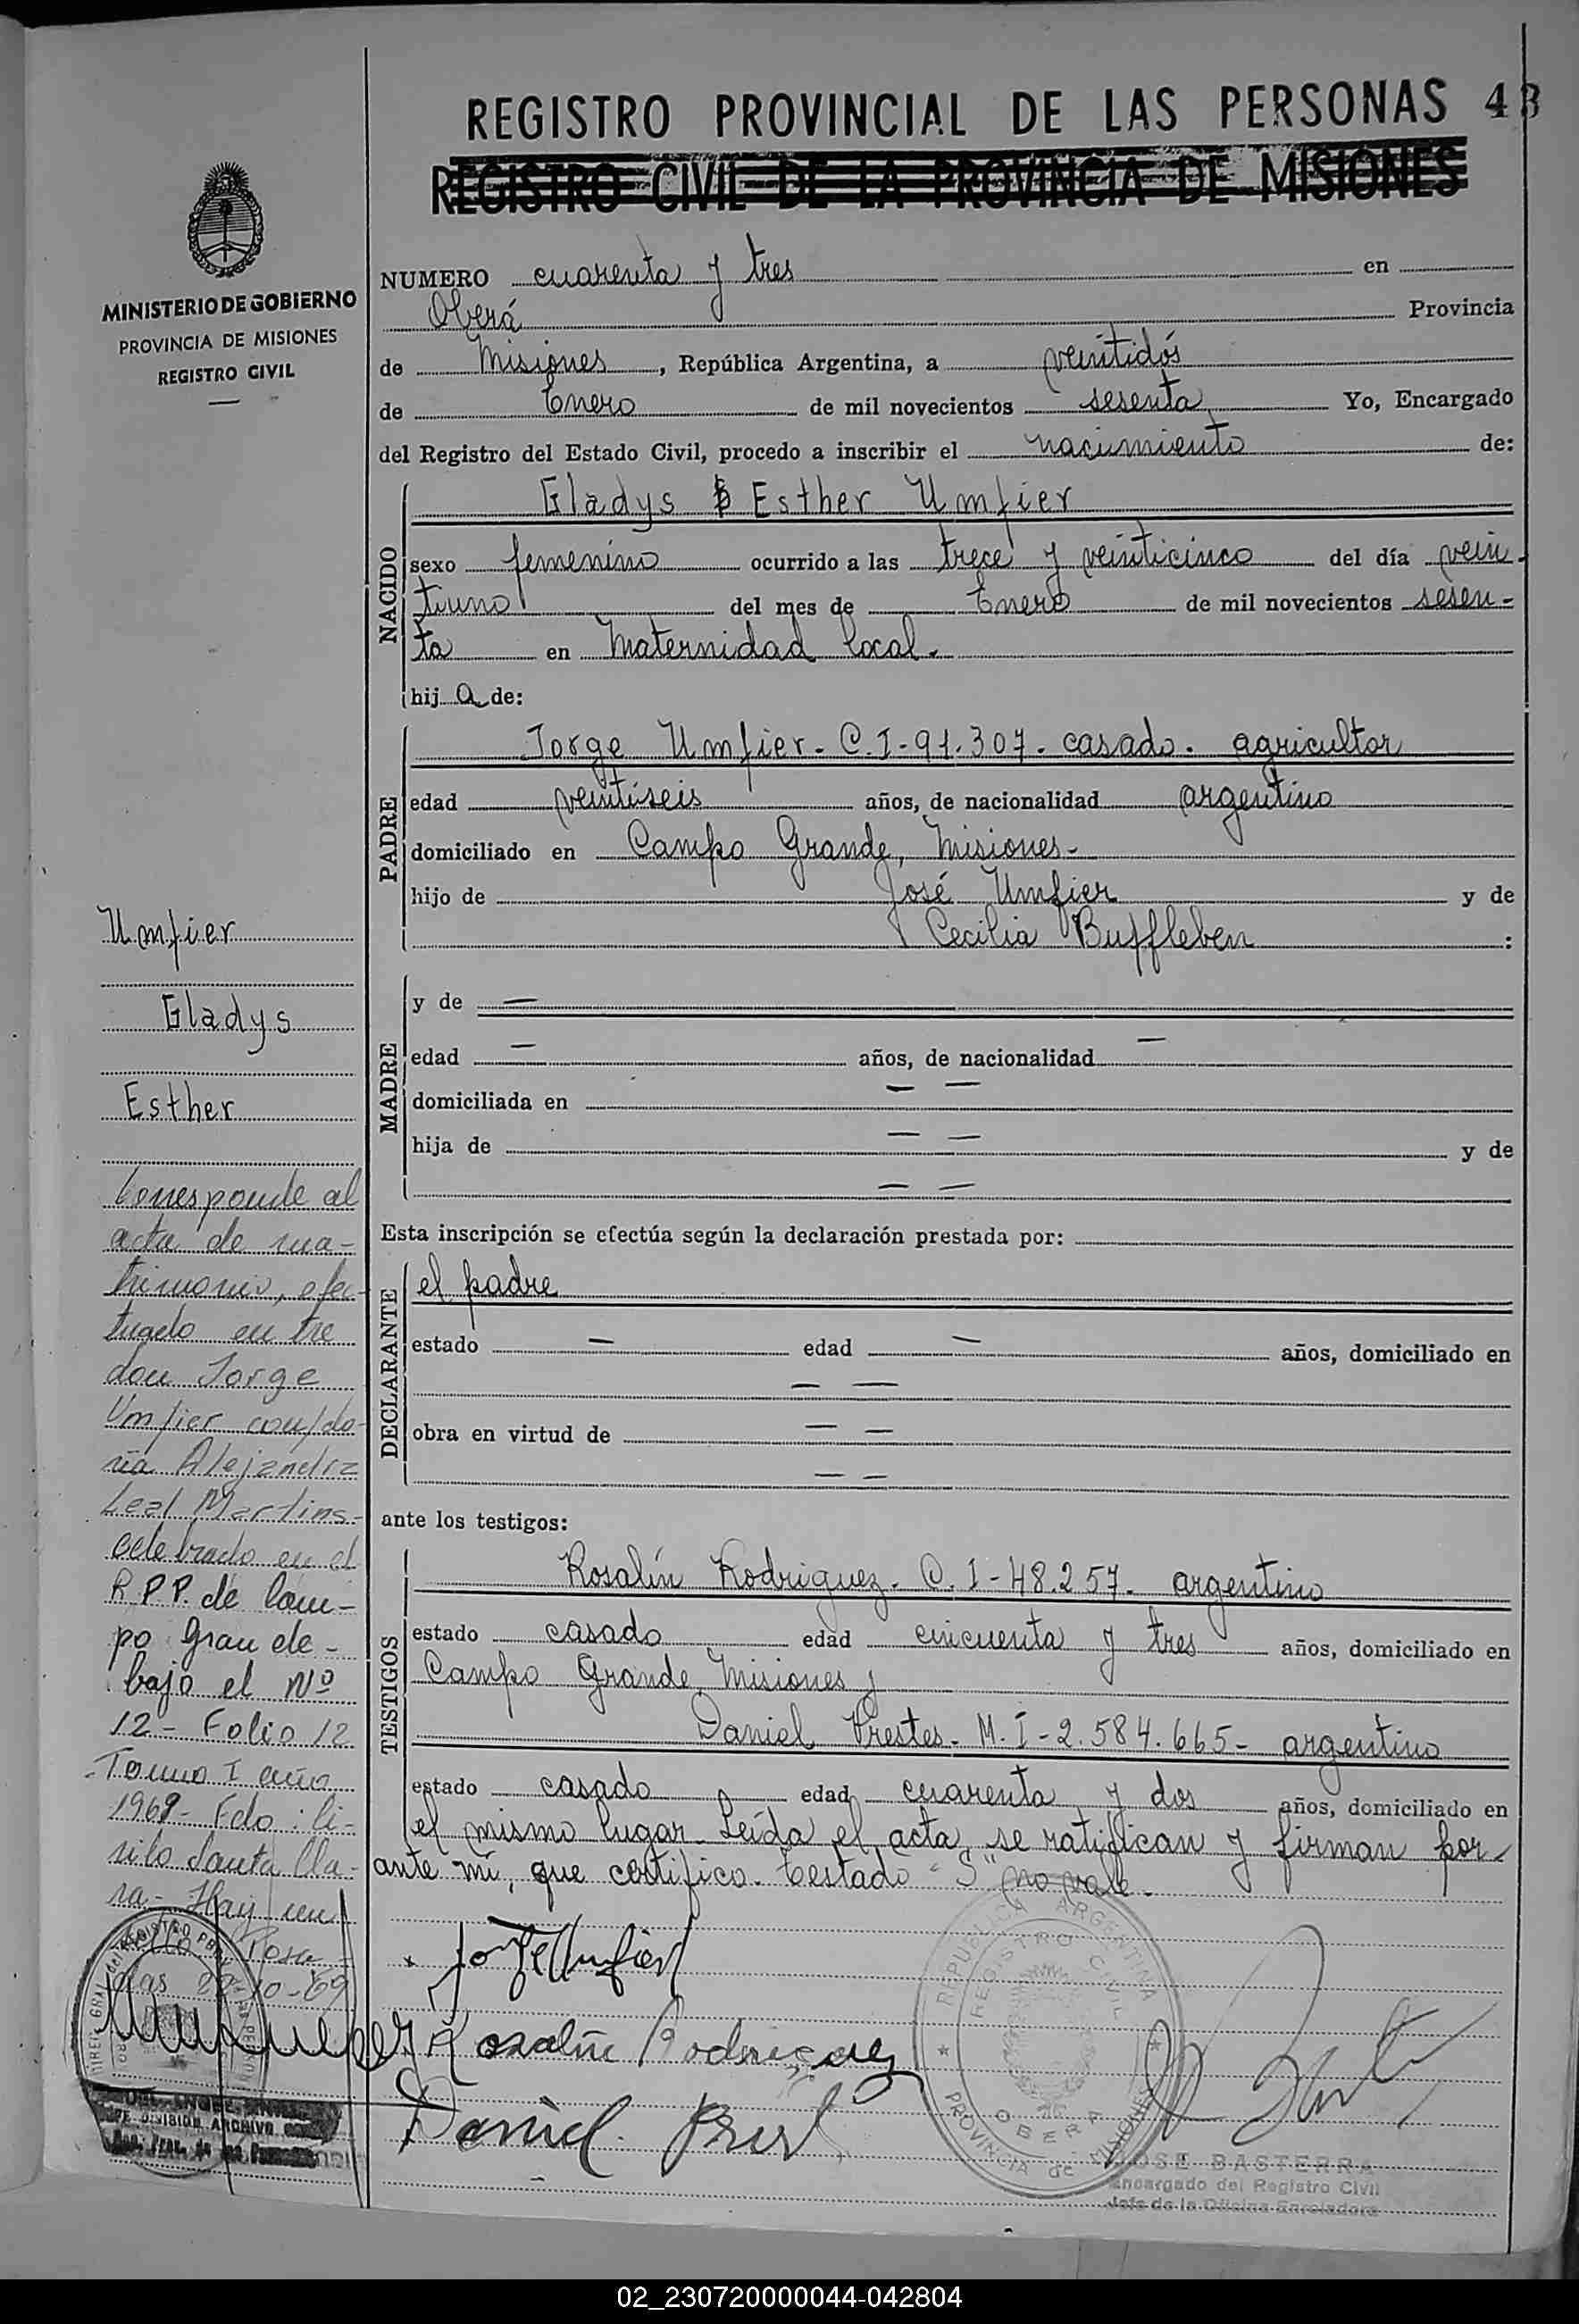 REGISTRO PROVINCIAL DE LAS PERSONAS 43
REGISTRO CIVIL DE LA PROVINCIA DE MISIONES
MINISTERIO DE GOBIERNO
PROVINCIA DE MISIONES
REGISTRO CIVIL
NUMERO cuarenta y tres en
Oberá Provincia
de Misiones, República Argentina, a veintidós
de Enero de mil novecientos sesenta Yo, Encargado
del Registro del Estado Civil, procedo a inscribir el nacimiento de:
NACIDO
Gladys S Esther Umfier
sexo femenino ocurrido a las trece y veinticinco del día vein-
tiuno del mes de Enero de mil novecientos sesen-
ta en Maternidad local.
hij a de:
PADRE
Jorge Umfier. C.I-91.307. casado. agricultor
edad veintiseis años, de nacionalidad argentino
domiciliado en Campo Grande, Misiones-
hijo de José Umfier y de
Cecilia Buffleben :
MADRE
y de —
edad — años, de nacionalidad —
domiciliada en — —
hija de — — y de
— —
Esta inscripción se efectúa según la declaración prestada por:
DECLARANTE
el padre
estado — edad — años, domiciliado en
— —
obra en virtud de — —
— —
ante los testigos:
TESTIGOS
Rosalín Rodriguez. C.I-48.257. argentino
estado casado edad cincuenta y tres años, domiciliado en
Campo Grande, Misiones y
Daniel Prestes. M.I-2.584.665- argentino
estado casado edad cuarenta y dos años, domiciliado en
el mismo lugar. Leída el acta, se ratifican y firman por-
ante mí, que certifico. Testado "S" no vale.
Jorge Umfier
Rosalin Rodriguez
Daniel Prest
REPUBLICA ARGENTINA
REGISTRO CIVIL
OBERA
PROVINCIA de MISIONES
JOSE BASTERRA
Encargado del Registro Civil
Jefe de la Oficina Enroladora
Umfier
Gladys
Esther
Corresponde al
acta de ma-
trimonio, efec-
tuado entre
don Jorge
Umfier con/do-
ña Alejandra
Leal Martins-
celebrado en el
R.P.P. de Cam-
po Grande-
bajo el Nº
12- Folio 12
Tomo I año
1969- Fdo: Ci-
rilo Santa Cla-
ra- Hay un
sello Posa-
das 22-10-69
DIVISION ARCHIVO
02_230720000044-042804